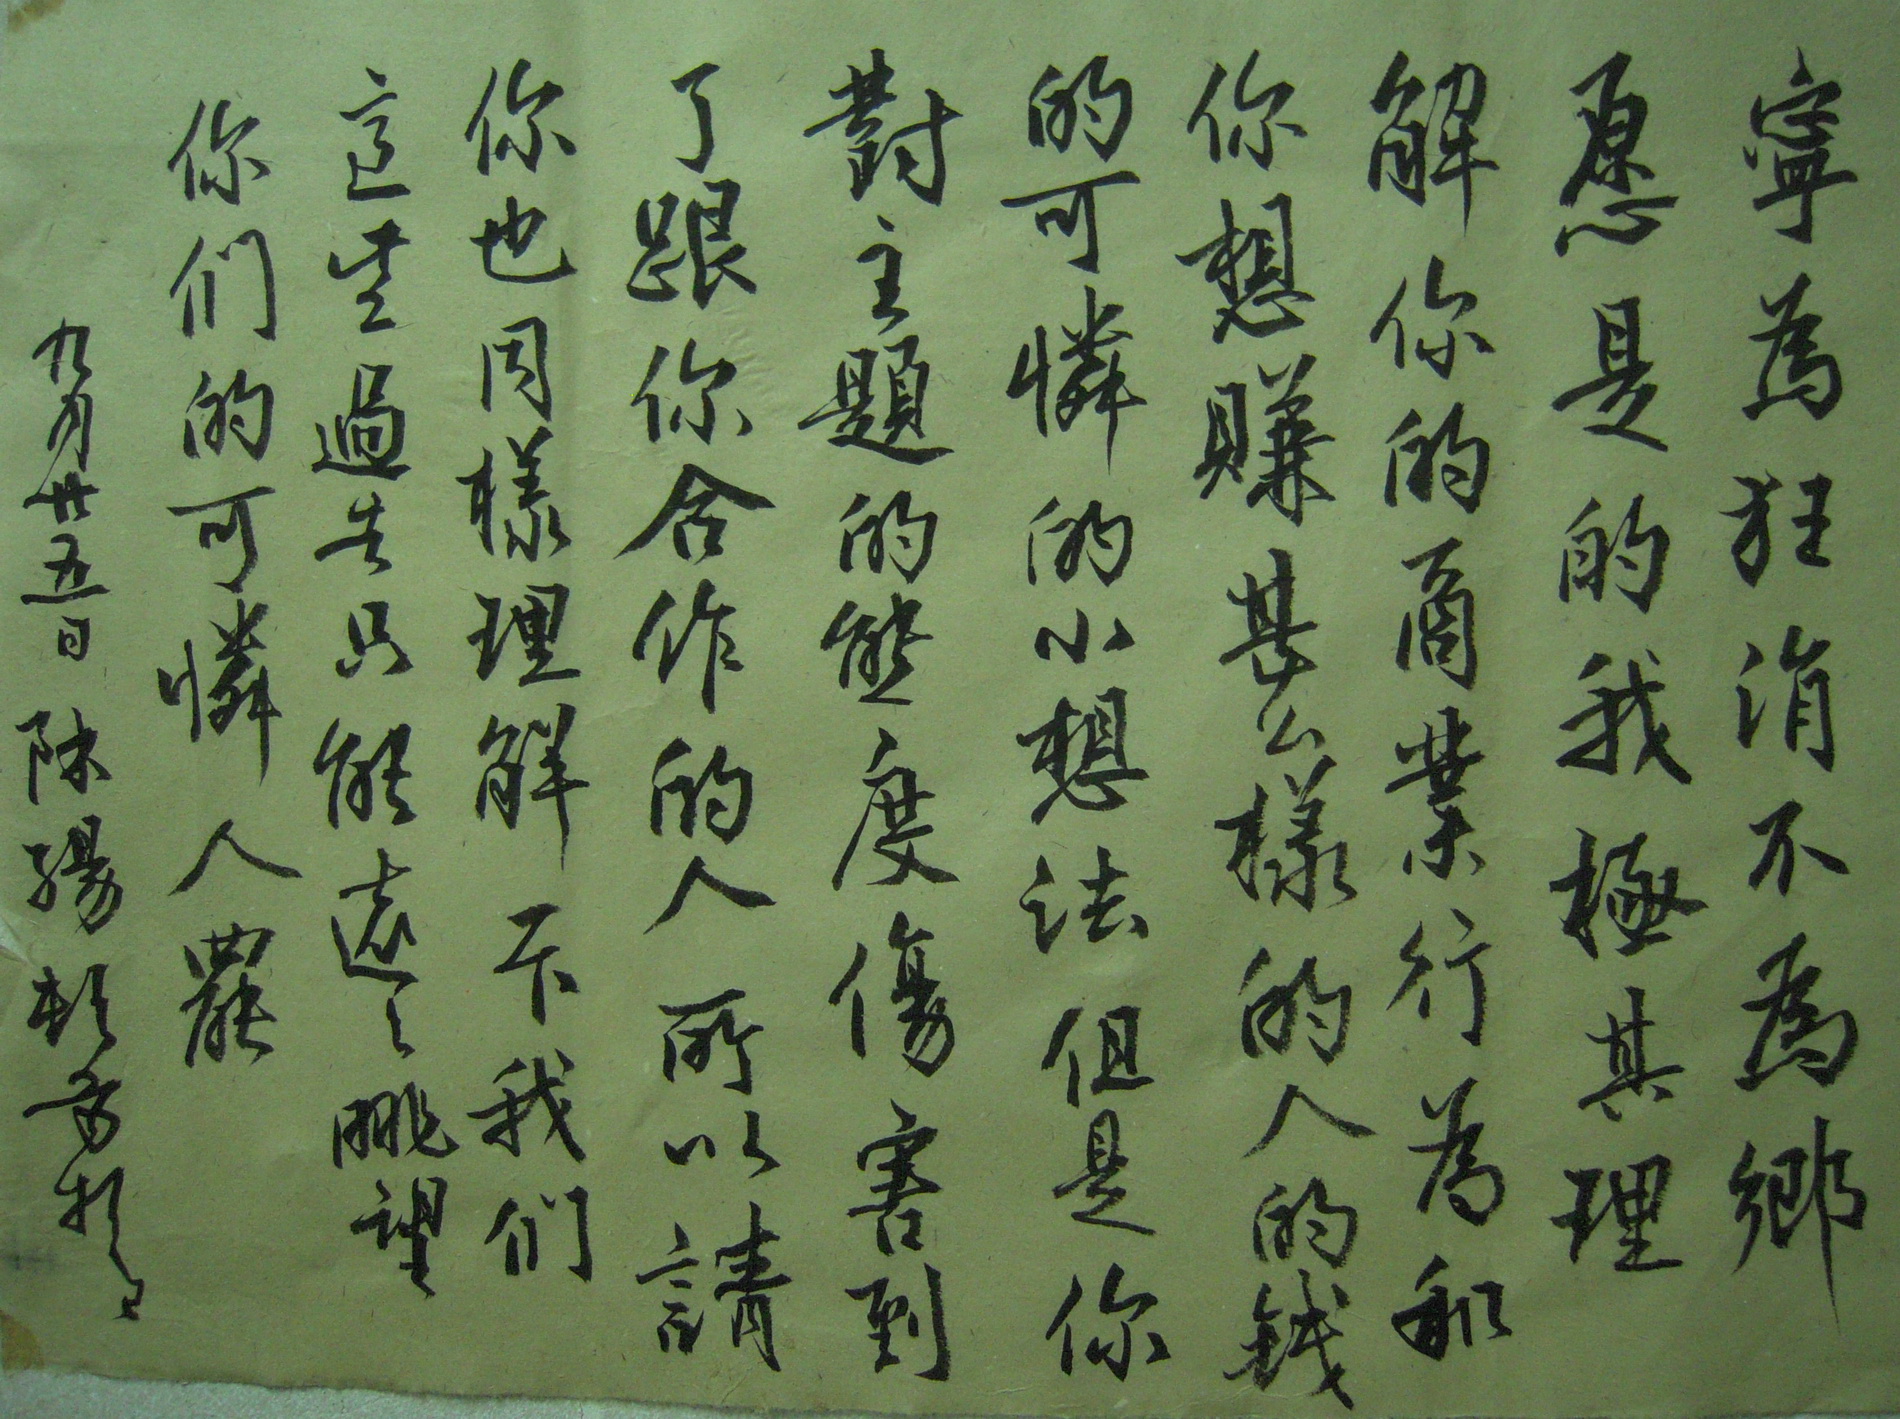 寧為狂涓不為鄉
愿是的我極其理
解你的商業行為和
你想賺甚么樣的人的钱
的可憐的小想法但是你
對主題的態度傷害到
了跟你合作的人所以請
你也同樣理解下我們
這些過去只能遠遠眺望
你们的可憐人罷
九月廿五日